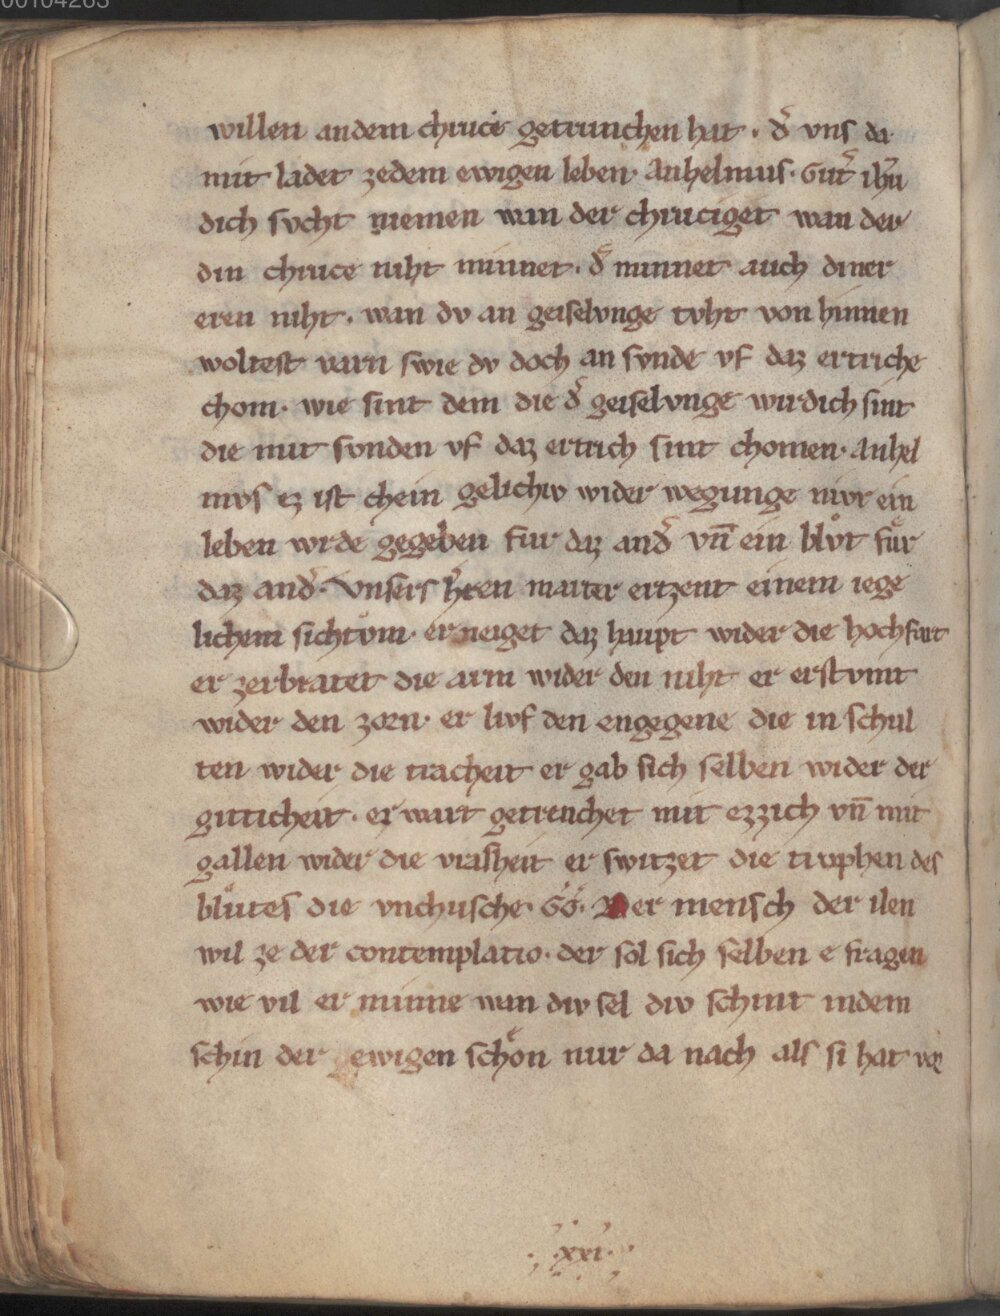 00104263
willen an dem chruce getrunchen hat . d͛ vns da
mit ladet zedem ewigen leben · Anhelmus · Gut͛ ih̄u
dich svcht niemen wan der chruciget wan der
din chruce niht minnet . d͛ minnet auch diner
eren niht . wan dv an geiselvnge tvht von hinnen
woltest varn swie dv doch an svnde vf daz ertriche
chom · wie sint dem die d͛ geiselvnge wirdich sint
die mit svnden vf daz ertrich sint chomen · Anhel
mvs ez ist chein gelichiv wider wegunge nivr ein
leben wrde gegeben fur daz and͛ vn̄ ein blvͦt fuͤr
daz and͛ · Vnsers h͛ren marter ertzent einem iege
lichem sichtvͦm · er neiget daz haupt wider die hochfart
er zerbraitet die arm wider den niht er erstvmt
wider den zorn · er livf den engegene die in schul
ten wider die tracheit er gab sich selben wider der
giticheit · er wart getrenchet mit ezzich vn̄ mit
gallen wider die vrasheit er switzet die trophen des
bluͤtes die vnchusche · GG · Der mensch der ilen
wil ze der contemplatio · der sol sich selben e fragen
wie vil er minne wan div sel div schint indem
schin der ewigen schoͤn nur da nach als si hat vor
· xxi ·